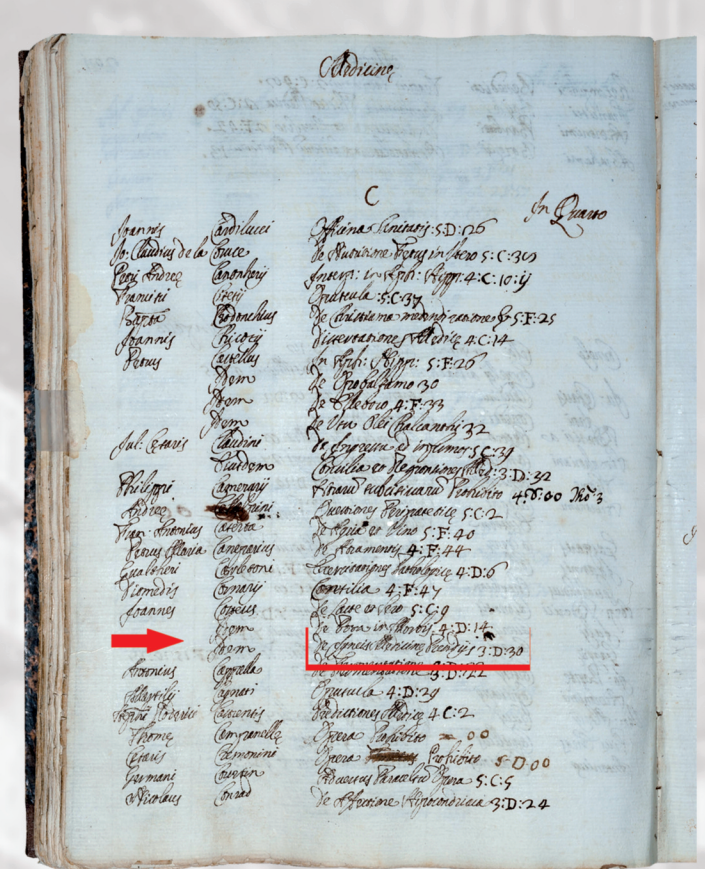 Medicinę
C
In Quarto
Joannis Cardilucci Officina Sanitatis 5:D:26
Jo: Claudius de la Courvee de Nutritione Fetus in Utero 5:C:
Petri Andreę Canonherij in Aph: Hipp: 4:C:10:
Francisci Opuscula 5:C:37
Bapta Codronchius de Christiana medendi ratione 5:F:25
Joannis Chicocij Dissertationes Medicę 4:C:14
Petrus Castellus In Aph: Hipp: 5:F:26
Idem de Opobalsamo 30
Idem de Eleboro 4:F:33
Idem de Usu Olei Chalcanthi 32
Jul: Cęsaris Claudini de Ingressu ad infirmos 5:C:39
Eiusdem Consilia et Responsiones Med: 3:D:32
Philippi Camerarij subcisivarum Prohibito 3
Andreę Questiones Peripateticę 5:C:2
Fran: Antonius Caserta 5:F:40
Petrus Maria Canepharius de Atramentis 4:F:44
Gualtheri Charletoni Exercitationes Pathologicę 4:D:6
Diomedis Cornarij Consilia 4:F:47
Joannes Costeus de Lacte et Sero 5:C:9
Idem de Potu in Morbis 4:D:14
Idem de Igneis Medicinę Pręsidijs 3:D:30
Antonius Cappella 3:D:22
Marsilij Cagnati Opuscula 4:D:29
Stephani Roderici Castrensis Medicę 4:C:2
Thomę Campanellę Opera Prohibito 00
Cęsaris Cremonini Opera Prohibito 5:D:00
Germani Courtin Adversus Paracelsum Opera 5:C:5
Nicolaus Conrad de Affectione Hipocondriaca 3:D:24